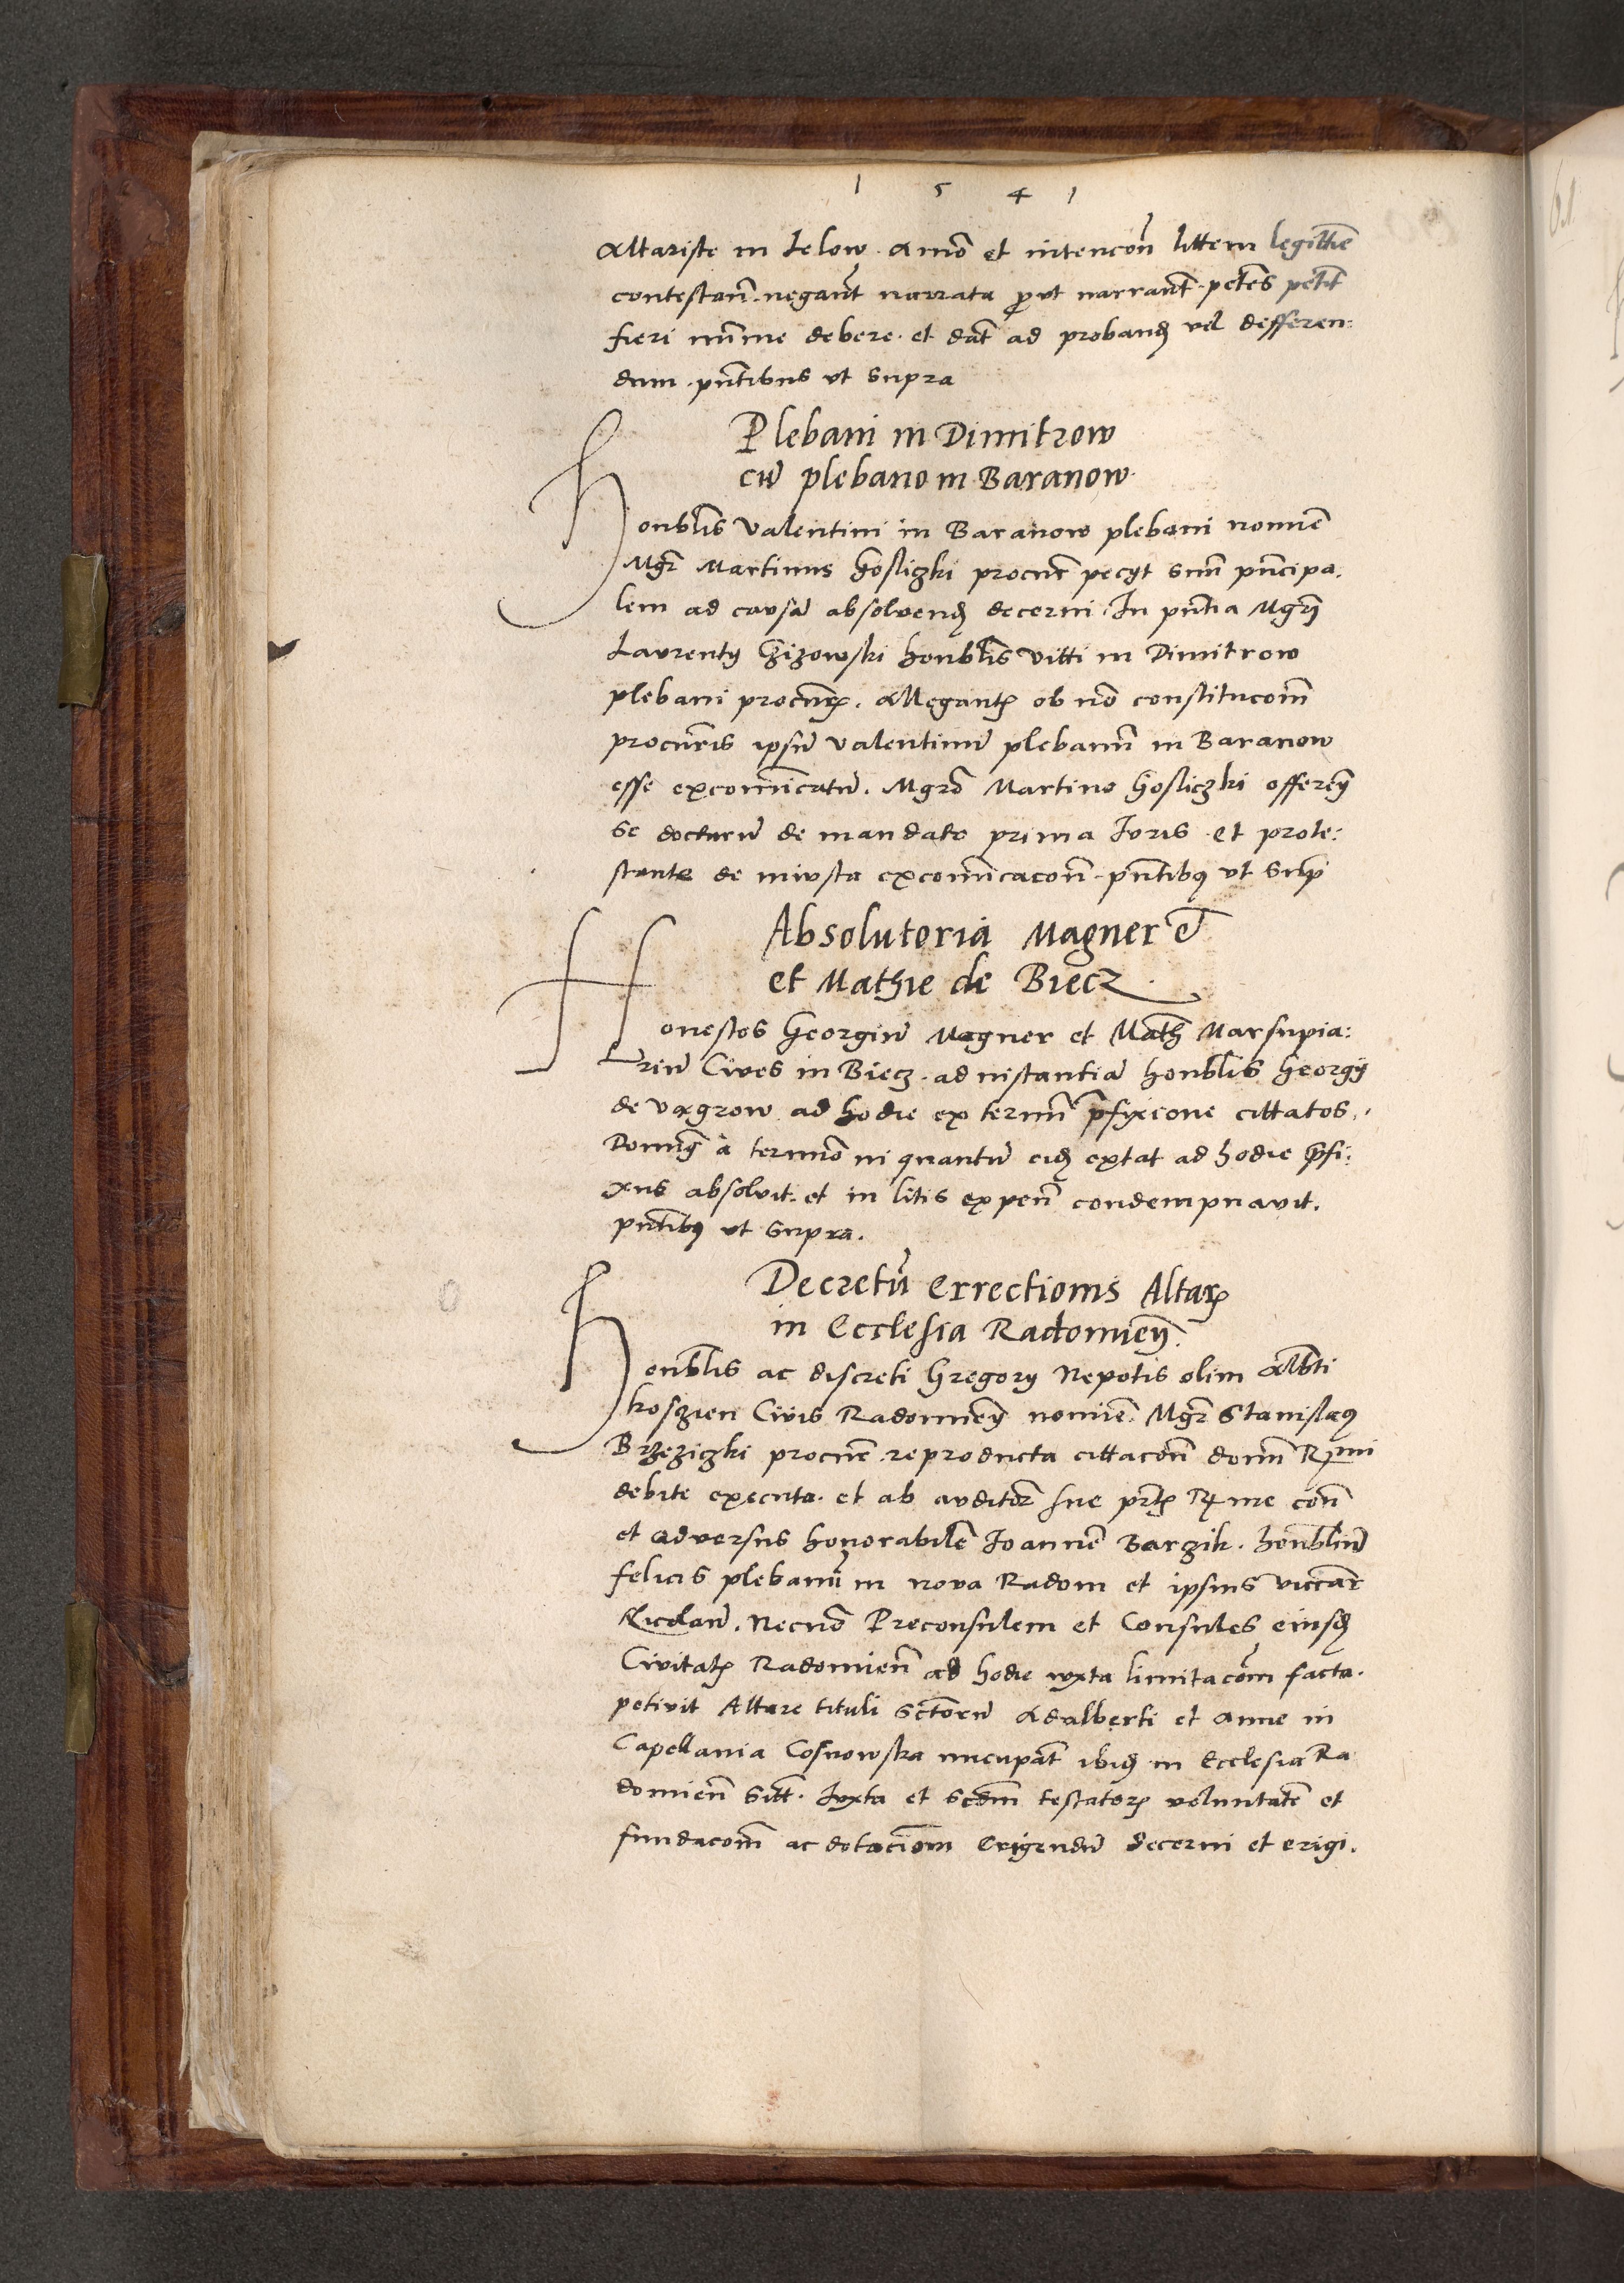 1 5 4 1
Altariste in Lelow. Animo et intencon̄ littem legittie
contestan̄. negant narrata prout narrant. petes petit
fieri mīme debere. et dat ad proband vel defferen:
dum. pn̄tibus ut supra
Plebani in Dimitrow
cū plebano in Baranow.
Honblis Valentini in Baranow plebani nomiē
Mgr̄ Martinus Gosliczki procur̄ pecyt suū prīcipa.
lem ad causā absolvend decerni. In pn̄tia Mgri
Laurenty Czizowski honblis Viti in Dimitrow
plebani procur̄. Allegantis ob nō constitucom̄
procur̄is ipsū Valentinū plebanū in Baranow
esse excom̄icatū. Mgrō Martino Gosliczki offeren̄
se docturū de mandato prima Iuris et prote:
stante de iniusta excom̄icacon̄. pn̄tibus ut supr
Absolutoria Magner
et Mathie de Biecz
Honestos Georgiū Magner et Math Marsupia:
riū Cives in Biecz. ad instantiā honblis Georgy
de Vagrow ad hodie ex termī prefixione cittatos.
Domin a termīo in quantū eid extat ad hodie prefi:
xus absolvit. et in litis expen̄ condempnavit.
pn̄tibus ut supra.
Decretū Errectionis Altaris
in Ecclesia Radomien.
Honblis ac discreti Gregory Nepotis olim Albti
koszien Civis Radomien nomiē. Mgr̄ Stanislaus
Brzeziczki procur̄. reproducta cittacon̄ domī R̄mi
debite executa. et ab auditor̄ sue prt̄is R̄me con̄
et adversus honorabilē Ioannē Barzik. honblinū
felicis plebanū in nova Radom et ipsius viccar̄
Nicolaū. Necnō Preconsulem et Consules eiusd
Civitatis Radomien̄ ad hodie iuxta limitacom̄ facta.
petivit Altare tituli Sctorū Adalberti et Anne in
Capellania Cosnowska nūcupat ibid in Ecclesia Ra
domien̄ sitt. Iuxta et scdm̄ testatoris voluntatē et
fundacom̄ ac dotaciom̄ Erigendū decerni et erigi.